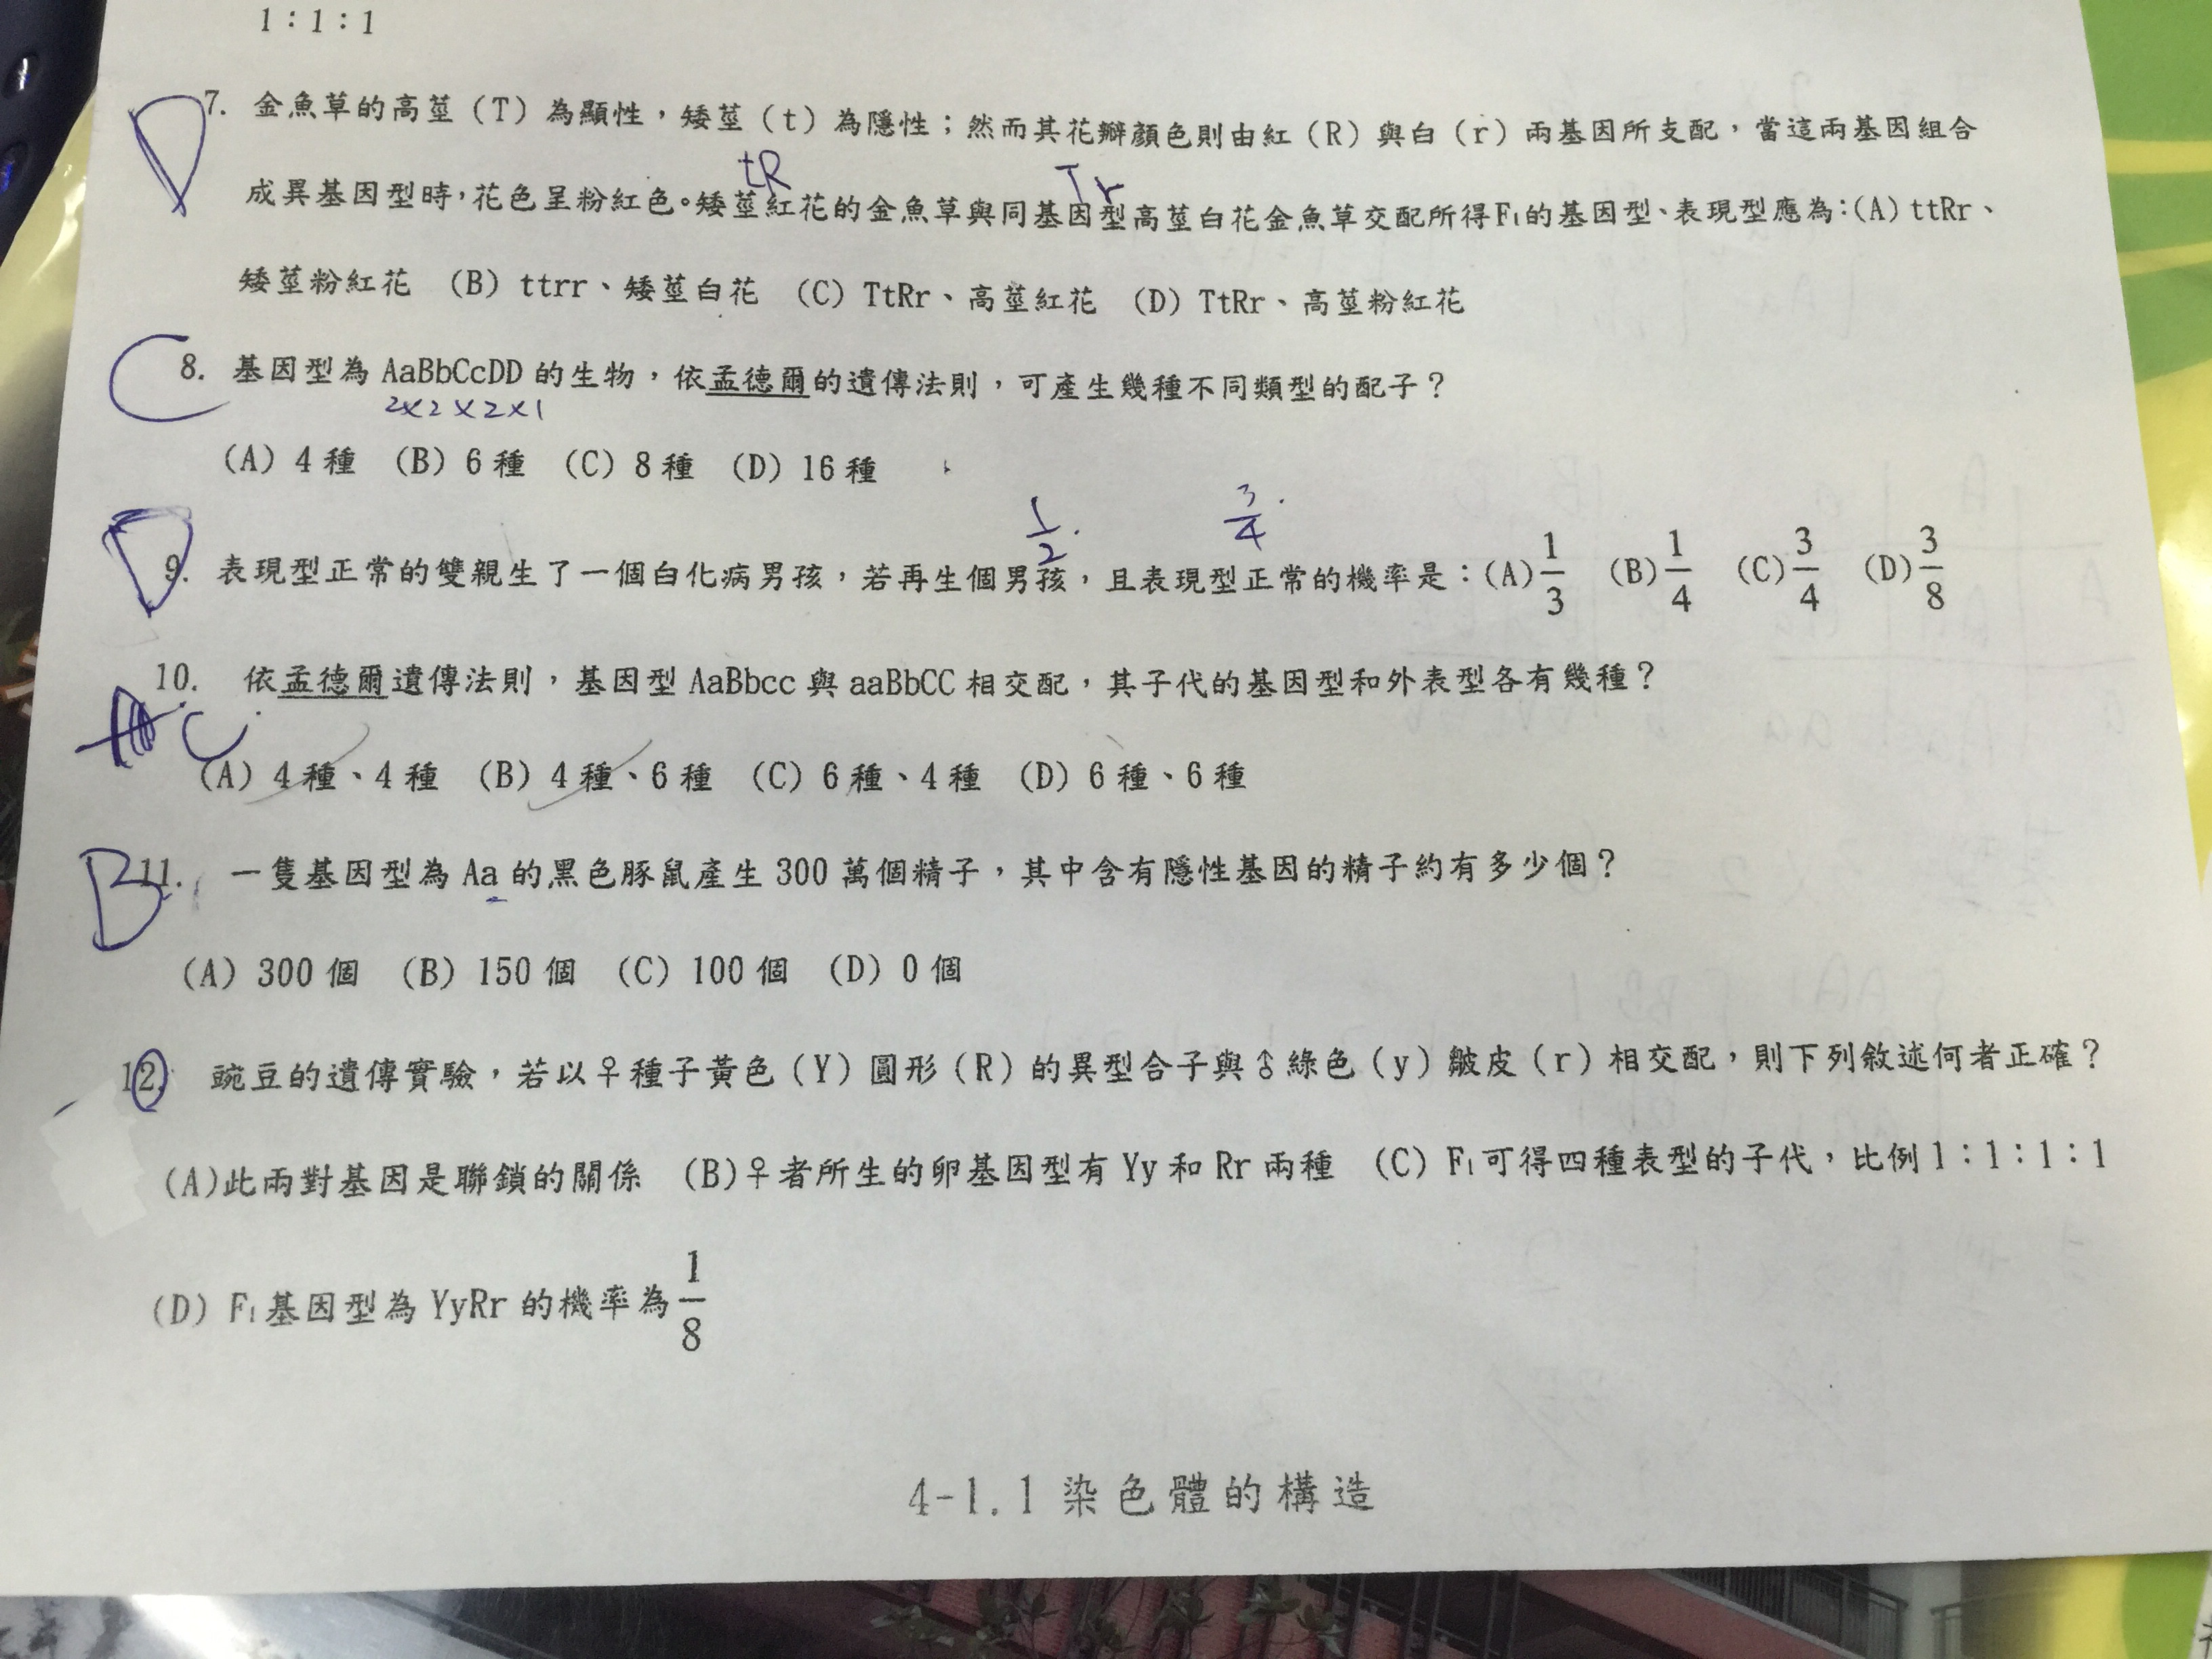 1:1:1
D 7. 金魚草的高莖(T)為顯性,矮莖(t)為隱性;然而其花瓣顏色則由紅(R)與白(r)兩基因所支配,當這兩基因組合
tR Tr
成異基因型時,花色呈粉紅色。矮莖紅花的金魚草與同基因型高莖白花金魚草交配所得F₁的基因型、表現型應為:(A) ttRr、
矮莖粉紅花 (B) ttrr、矮莖白花 (C) TtRr、高莖紅花 (D) TtRr、高莖粉紅花
C 8. 基因型為 AaBbCcDD 的生物,依孟德爾的遺傳法則,可產生幾種不同類型的配子?
2×2×2×1
(A) 4 種 (B) 6 種 (C) 8 種 (D) 16 種
1/2 3/4
D 9. 表現型正常的雙親生了一個白化病男孩,若再生個男孩,且表現型正常的機率是:(A) 1/3 (B) 1/4 (C) 3/4 (D) 3/8
10. 依孟德爾遺傳法則,基因型 AaBbcc 與 aaBbCC 相交配,其子代的基因型和外表型各有幾種?
C
(A) 4 種、4 種 (B) 4 種、6 種 (C) 6 種、4 種 (D) 6 種、6 種
B 11. 一隻基因型為 Aa 的黑色豚鼠產生 300 萬個精子,其中含有隱性基因的精子約有多少個?
(A) 300 個 (B) 150 個 (C) 100 個 (D) 0 個
12. 豌豆的遺傳實驗,若以♀種子黃色(Y)圓形(R)的異型合子與♂綠色(y)皺皮(r)相交配,則下列敘述何者正確?
(A)此兩對基因是聯鎖的關係 (B)♀者所生的卵基因型有 Yy 和 Rr 兩種 (C) F₁可得四種表型的子代,比例1:1:1:1
(D) F₁基因型為 YyRr 的機率為 1/8
4-1.1 染色體的構造